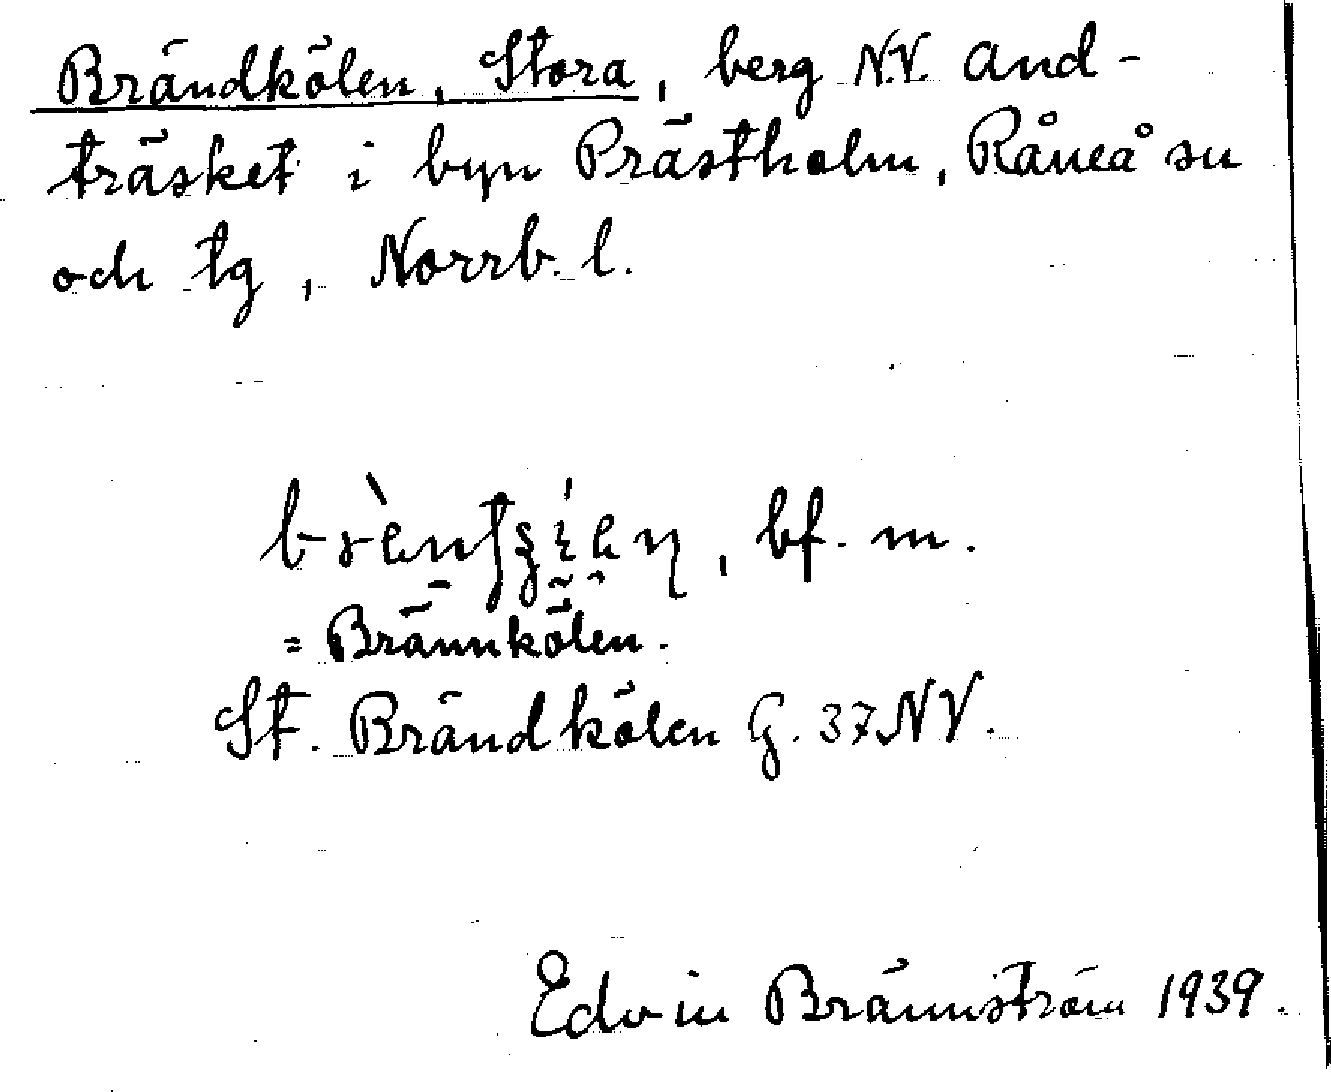 Brändkölen, Stora, berg N.V. And-
träsket i byn Prästholm, Råneå sn
och tg, Norrb. l.
bf. m.
= Brännkölen.
St. Brändkölen G. 37 NV.
Edvin Brännström 1939.